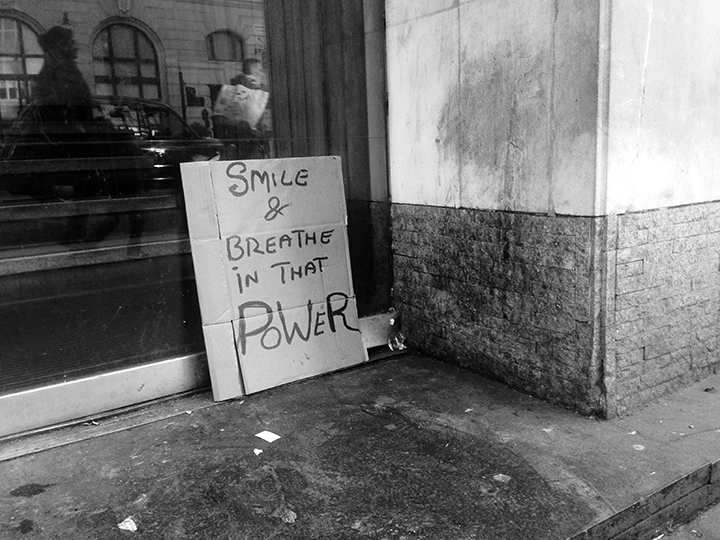 SMILE
&
BREATHE
iN THAT
POWeR